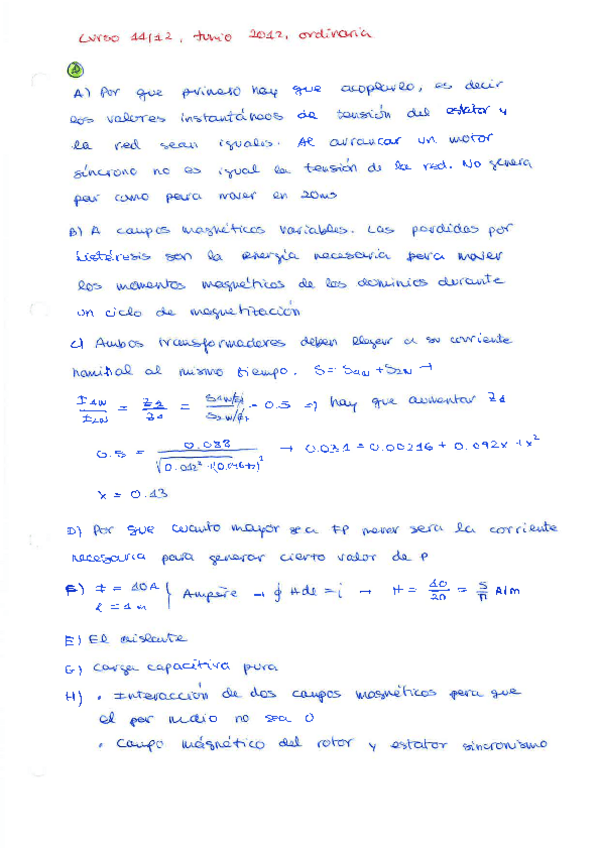 Curso 11/12, Junio 2012, ordinaria
A) Por que primero hay que acoplarlo, es decir
los valores instantáneos de tensión del estator y
la red sean iguales. Al arrancar un motor
síncrono no es igual la tensión de la red. No genera
par como para mover en 20ms
B) A campos magnéticos variables. Las perdidas por
histéresis son la energía necesaria para mover
los momentos magnéticos de los dominios durante
un ciclo de magnetización
c) Ambos transformadores deben llegar a su corriente
nominal al mismo tiempo. S = S1N + S2N →
= = = 0.5 => hay que aumentar
0.5 = 0.088 → 0.031 = 0.00216 + 0.092x + x²
x = 0.13
D) Por que cuanto mayor sea FP menor sera la corriente
necesaria para generar cierto valor de P
I = 10A Ampère → ∮ Hdl = i → H = = A/m
E) El aislante
G) Carga capacitiva pura
H) • Interacción de dos campos magnéticos para que
el par medio no sea 0
• Campo magnético del rotor y estator sincronismo